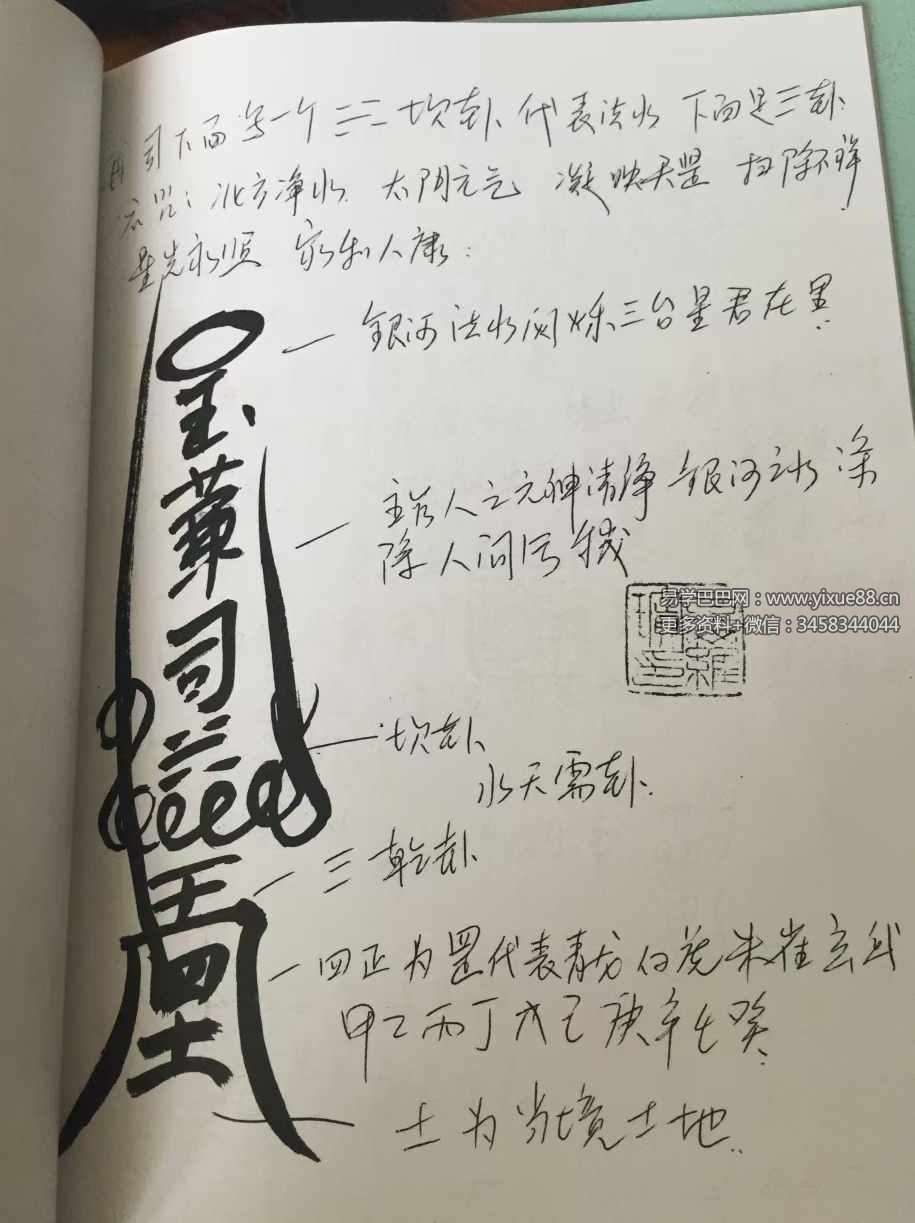 司下面写一个三三二坎卦代表法水 下面是三卦
咒：北方净水 太阴元气 凝映天罡 扫除不祥
星光永照 家和人康：
银河法水闪烁三台星君在里
主治人之元神清净 银河之水 涤
除人间污秽
玉
華
司
易学巴巴网：www.yixue88.cn
更多资料+微信：3458344044
坎卦
水天需卦
三 乾卦
王
四
土
四正为罡代表青龙白虎朱雀玄武
甲乙丙丁戊己庚辛壬癸
土为当境土地